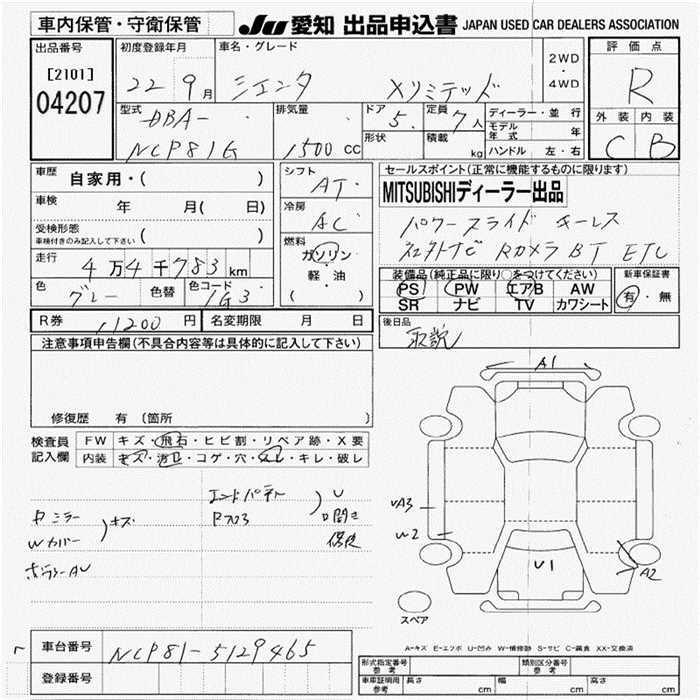 車内保管・守衛保管
JU 愛知 出品申込書 JAPAN USED CAR DEALERS ASSOCIATION
出品番号
[2101]
04207
初度登録年月
22 9月
車名・グレード
シエンタ Xリミテッド
2WD
・
4WD
評価点
R
外装 内装
C B
型式
DBA-
NCP81G
排気量
1500 CC
ドア
5
形状
定員
7人
積載
kg
ディーラー・並行
モデル年式 年
ハンドル 左・右
車歴 自家用・( )
車検 年 月( 日)
受検形態
車検付きのみ記入して下さい ( )
走行 4万4千783km
色 グレー 色替 色コード 1G3
シフト
AT
冷房
AC
燃料
ガソリン
軽・油
( )
セールスポイント(正常に機能するものに限ります)
MITSUBISHIディーラー出品
パワースライド キーレス
社外ナビ Rカメラ BT ETC
装備品(純正品に限り○をつけてください)
PS PW エアB AW
SR ナビ TV カワシート
新車保証書
有・無
R券 11200円 名変期限 月 日
後日品
取説
注意事項申告欄(不具合内容等は具体的に記入して下さい)
修復歴 有 〔箇所 〕
検査員
記入欄
FW キズ・飛石・ヒビ割・リペア跡・X要
内装 キズ・汚れ・コゲ・穴・スレ・キレ・破レ
ミラー
Wカバー
キズ
エンドパネル
U
A1
UA3
W2
U1
A2
スペア
A-キズ E-エクボ U-凹み W-補修跡 S-サビ C-腐食 XX-交換済
車台番号 NCP81-5129465
登録番号
形式指定番号
参考
類別区分番号
参考
車庫証明用
参考
長さ cm 幅 cm 高さ cm